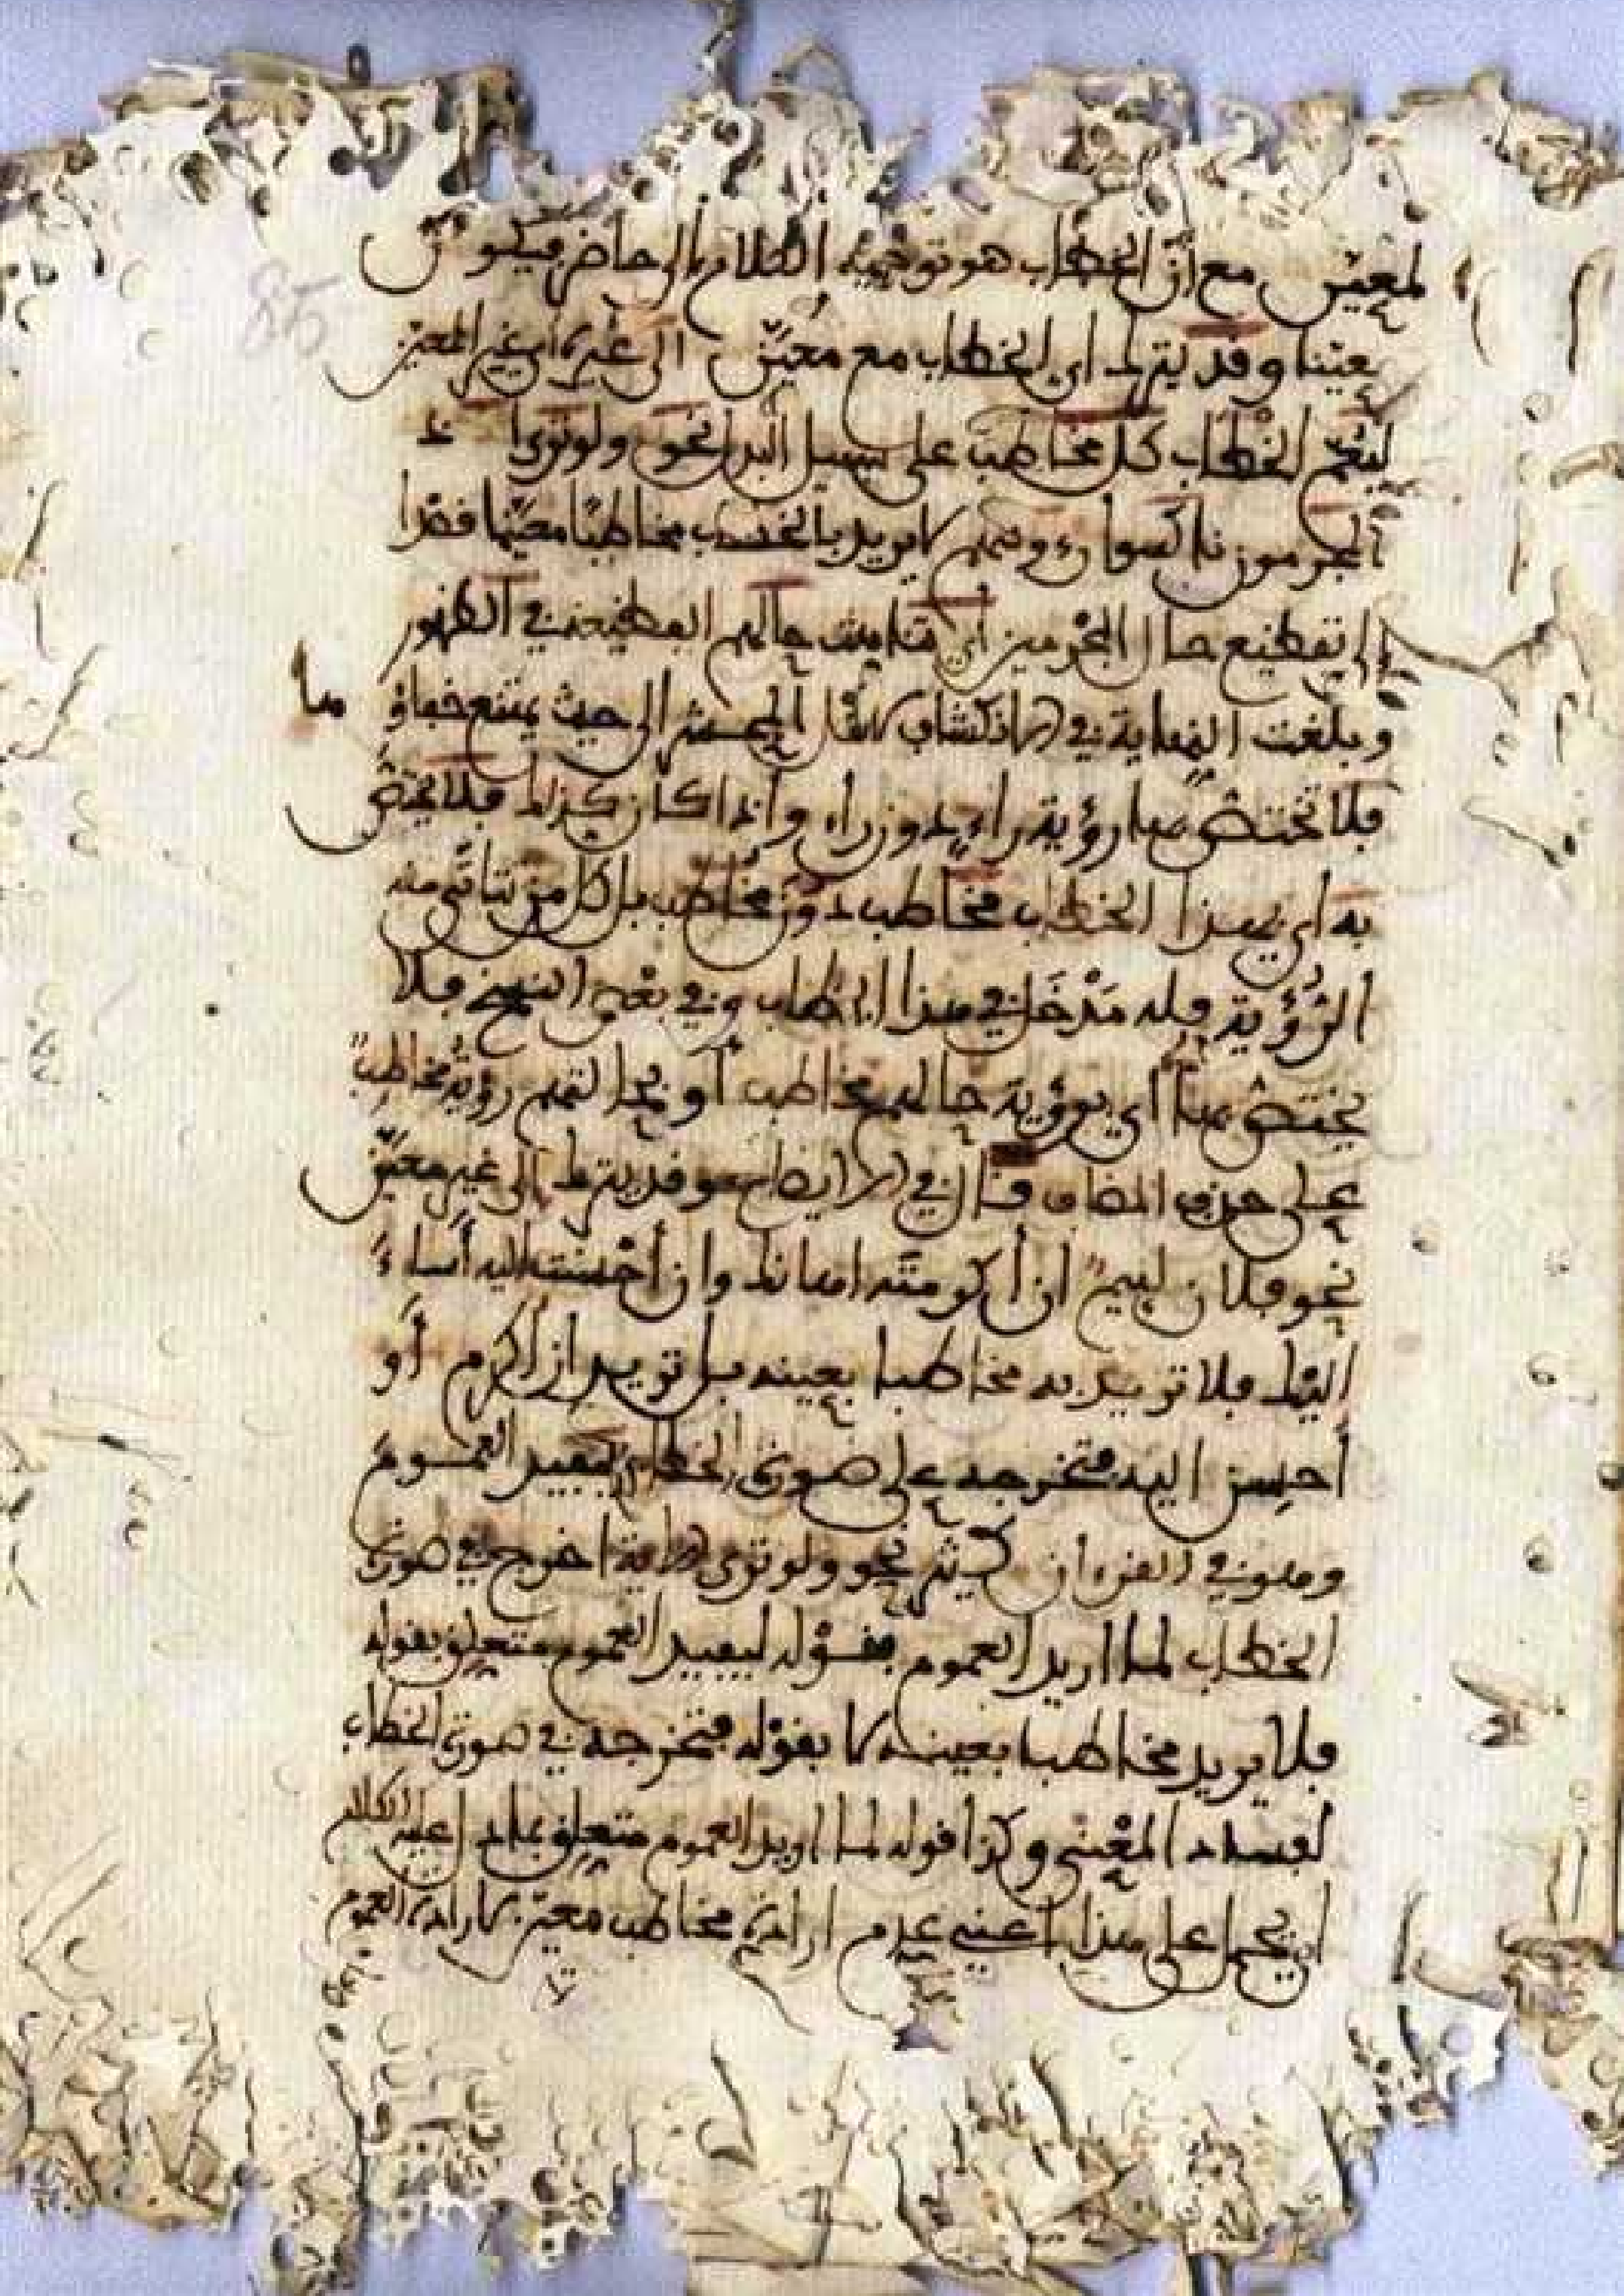 لمعين مع أن الخطاب هو توجيه الكلام إلى حاضر فيكون
معينا وقد يترك أي الخطاب مع معين إلى غيره أي غير المعين
ليعم الخطاب كل مخاطب على سبيل البدل نحو ولو ترى إذ
المجرمون ناكسوا رءوسهم لا يريد بالخطاب مخاطبا معينا قصدا
إلى تفظيع حال المجرمين أي تناهت حالهم الفظيعة في الظهور
وبلغت النهاية في الانكشاف لأهل المحشر إلى حيث يمتنع خفاؤها
فلا تختص بها رؤية راء دون راء وإذا كان كذلك فلا يختص
به أي بهذا الخطاب مخاطب دون مخاطب بل كل من تتأتى منه
الرؤية فله مدخل في هذا الخطاب وفي بعض النسخ فلا
يختص بها أي برؤية حالهم مخاطب أو بحالتهم رؤية مخاطب
على حذف المضاف قال في الإيضاح وقد يترك إلى غير معين
نحو فلان لييم إن أكرمته أهانك وإن أحسنت إليه أساء
إليك فلا تريد به مخاطبا بعينه بل تريد إن أكرم أو
أحسن إليه فتخرجه على صورة الخطاب ليفيد العموم
وهو في القرءان كثير نحو ولو ترى الآية أخرج في صورة
الخطاب لما أريد العموم فقوله ليفيد العموم متعلق بقوله
فلا يريد مخاطبا بعينه لا بقوله فتخرجه في صورة الخطاب
لفساد المعنى وكذا قوله لما أريد العموم متعلق بما دل عليه الكلام
أن يحمل على هذا أعني عدم إرادة مخاطب معين لإرادة العموم